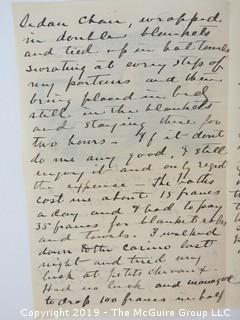 Sedan Chair, wrapped
in double blankets
and tied up in bath towels
swearing at every step of
my porteurs and then
being placed in bed
still in the blankets
and staying there for
two hours - If it don't
do me any good, I still
enjoy it and only regret
the expense - The baths
cost me about 15 francs
a day and I had to pay
35 francs for blanket robes
and towels. I walked
down to the casino last
night and tried my
luck at petits chevaux.
Had no luck and managed
to drop 100 francs in half
COPYRIGHT 2019 - The McGuire Group LLC